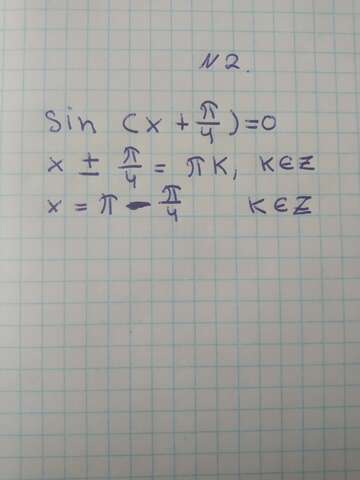 N 2.
sin (x + π/4) = 0
x ± π/4 = πK, K∈Z
x = π - π/4 K∈Z